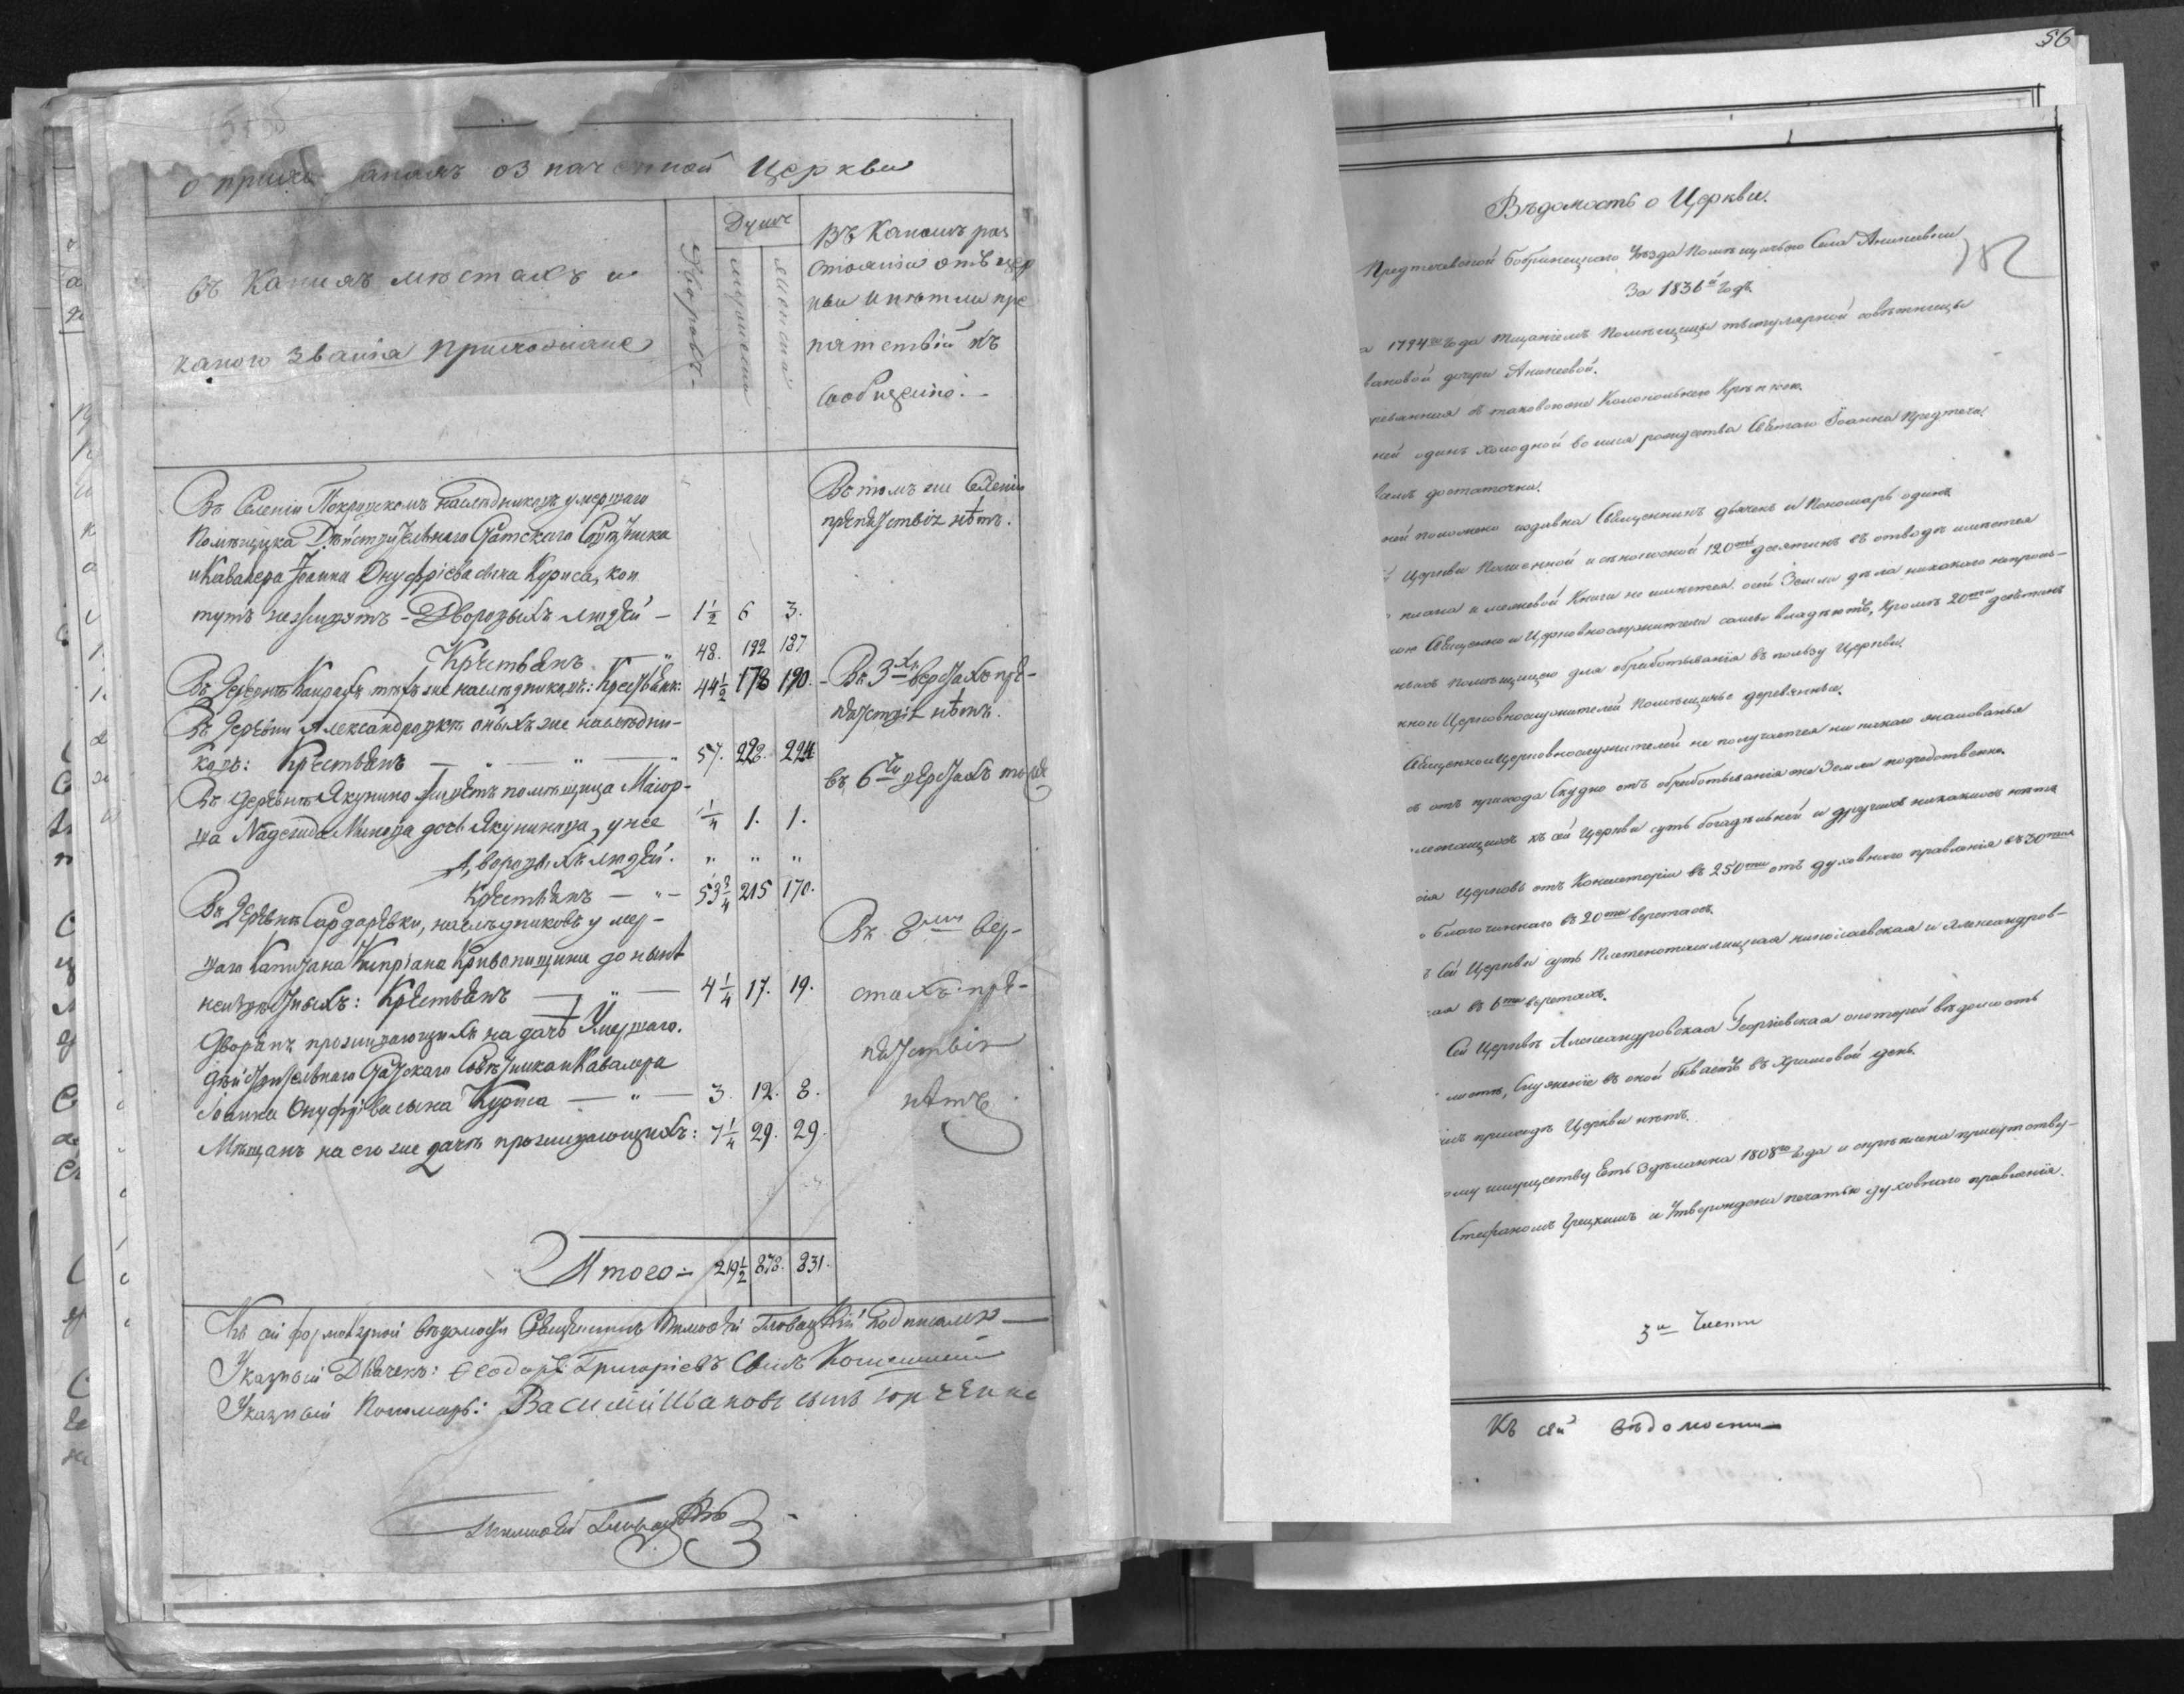 о прихожанахъ означенной Церкви
въ Какихъ местахъ и
какого Званія Прихожане
Дворовъ
Душъ
мужеска
женска
въ Какомъ раз
стояніи отъ цер
кви и нетъ ли пре
пятствій къ
сообщенію.
Въ Селеніи Покровскомъ наслѣдниковъ умершаго
Помѣщика Дѣйствительнаго Статскаго Советника
и Кавалера Іоанна Онуфріева сына Куриса, кои
тутъ не живутъ - Дворовыхъ людей — 1½ 6 3.
Въ томъ же Селеніи
препятствія нѣтъ.
Крестьянъ — „ 48. 192 187
Въ Деревнѣ тѣхъ же наслѣдниковъ: Крестьянъ: 44½ 178 190.
Въ 3хъ верстахъ пре-
пятствія нѣтъ.
Въ Деревни Александровкѣ оныхъ же наслѣдни-
ковъ: Крестьянъ — „ „ „ 57. 228. 224
въ 6ти верстахъ тоже
Въ деревнѣ Якунино живетъ помѣщица Маіор-
ша Надежда дочь Якунинова, у нее ¼ 1. 1.
Дворовыхъ людей. „ „ „
Крестьянъ — „ — 53¾ 215 170.
Въ Деревнѣ Сардаревки, наслѣдниковъ умер-
шаго Капитана Кипріана Кривошицкина до нынѣ
неизвѣстныхъ: Крестьянъ — „ — 4¼ 17. 19.
Въ 8ми вер-
стахъ пре-
пятствія
нѣтъ
Дворянъ проживающихъ на дачѣ Умершаго.
Дѣйствительнаго Статскаго Совѣтника и Кавалера
Іоанна Онуфріева сына Куриса — „ — 3. 12. 8.
Мѣщанъ на его же дачѣ проживающихъ: 7¼ 29. 29.
Итого = 219½ 878. 831.
Къ сей формулярной вѣдомости Священникъ Тимоѳей Гловацкій подписался
Указный Дьячекъ: Ѳеодоръ Григоріевъ Сынъ
Указный Пономарь: Василій Ивановъ сынъ Юрченко
Тимоѳей Гловацкій
56
Вѣдомость о Церкви.
Предтечевской Бобринецкаго Уѣзда Помѣщичьяго Села Ананіевки
За 1836й Годъ
1794го Года тщаніемъ Помѣщицы титулярной совѣтницы
вановой дочери Ананіевой.
ревянная съ таковоюже Колокольнею Крѣпкою.
ней одинъ холодной во имя рождества Святаго Іоанна Предтечи.
достаточна.
ней положено издавна Священникъ дьячекъ и Пономарь одинъ
Церкви Пашенной и сѣнокосной 120ть десятинъ въ отводѣ имѣется
плана и межевой Книги не имѣется. сей Земли
Священно и Церковнослужители сами владѣютъ, Кромѣ 20ти десятинъ
Помѣщицею для обработыванія въ пользу Церкви.
Церковнослужителей Помѣщичьи деревянные.
Священноицерковнослужителей не получается ни какого жалованья
отъ прихода Скудно отъ обработыванія же Земли посредственно.
къ сей Церкви суть богадѣльней и другихъ никакихъ нѣтъ
Церковь отъ Консисторіи въ 250ти отъ духовнаго правленія въ 30ти
Благочиннаго въ 20ти верстахъ.
Сей Церкви суть Плетеноташлицкая николаевская и Александров-
въ 6ти верстахъ.
Сей Церквѣ Александровская Георгіевская о которой вѣдомость
Служеніе въ оной бываетъ въ Храмовой день.
приходѣ Церкви нѣтъ.
имуществу Есть Здѣланна 1808го Года и скрѣплена присутству-
Стефаномъ Грецкимъ и Утверждена печатью духовнаго правленія.
3й Части
Къ сей вѣдомости